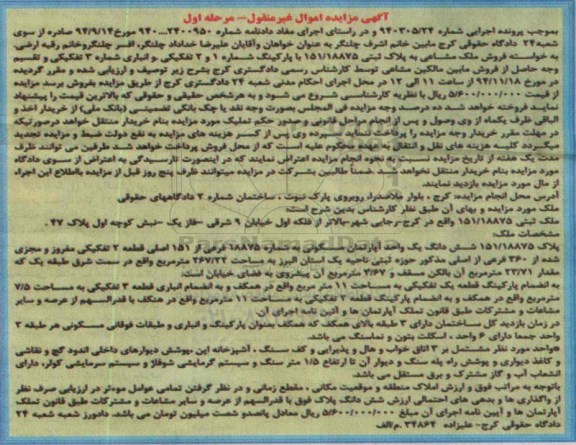 آگهی مزایده اموال غیرمنقول- مرحله اول
بموجب پرونده اجرایی شماره ۹۴۰۳۰۵/۲۴ و در راستای اجرای مفاد دادنامه شماره ۲۴۰۰۹۵۰...۹۴۰ مورخ ۹۴/۹/۱۴ صادره از سوی
شعبه ۲۴ دادگاه حقوقی کرج مابین خانم اشرف چلنگر به عنوان خواهان وآقایان علیرضا خداداد چلنگر، افسر چلنگروخانم رقیه ارضی.
به خواسته فروش ملک مشاعی به پلاک ثبتی ۱۵۱/۱۸۸۷۵ با پارکینگ شماره ۱ و ۲ تفکیکی و انباری شماره ۳ تفکیکی و تقسیم
وجه حاصل از فروش مابین مالکین مشاعی توسط کارشناس رسمی دادگستری کرج بشرح زیر توصیف و ارزیابی شده و مقرر گردیده
در مورخ ۹۴/۱۱/۱۸ از ساعت ۱۱ الی ۱۲ در محل اجرای احکام مدنی شعبه ۲۴ دادگستری کرج از طریق مزایده بفروش برسد مزایده
از قیمت ۵/۶۰۰/۰۰۰/۰۰۰ ریال با نظریه کارشناسی شروع می شود و به هرشخص حقیقی و حقوقی که بالاترین قیمت را پیشنهاد
نماید فروخته خواهد شد ده درصد وجه مزایده فی المجلس بصورت وجه نقد یا چک بانکی تضمینی (بانک ملی) از خریدار اخذ و
الباقی ظرف یکماه از وی وصول و پس از انجام مراحل قانونی و صدور حکم تملیک مورد مزایده بنام خریدار منتقل خواهد شد درصورتیکه
در مهلت مقرر خریدار وجه مزایده را پرداخت ننماید سپرده وی پس از کسر هزینه های مزایده به نفع دولت ضبط و مزایده تجدید
میگردد کلیه هزینه های نقل و انتقال به عهده محکوم علیه است که از محل فروش پرداخت خواهد شد طرفین می توانند ظرف
مدت یک هفته از تاریخ مزایده نسبت به نحوه انجام مزایده اعتراض نمایند که در اینصورت تارسیدگی به اعتراض از سوی دادگاه
مورد مزایده بنام خریدار منتقل نخواهد شد .ضمناً طالبین بشرکت در مزایده میتوانند ظرف پنج روز قبل از مزایده بااطلاع این اجراء
از مال مورد مزایده بازدید نمایند.
آدرس محل انجام مزایده: کرج . بلوار ملاصدرا، روبروی پارک نبوت . ساختمان شماره ۳ دادگاههای حقوقی
ملک مورد مزایده و بهای آن طبق نظر کارشناس بدین شرح است:
ملک ثبتی ۱۵۱/۱۸۸۷۵ واقع در کرج-رجایی شهر-بالاتر از فلکه اول خیابان ۹ شرقی -فاز یک -نبش کوچه اول پلاک ۴۷ .
مشخصات ملک:
پلاک ۱۵۱/۱۸۸۷۵ شش دانگ یک واحد آپارتمان مسکونی به شماره ۱۸۸۷۵ فرعی از ۱۵۱ اصلی قطعه ۲ تفکیکی مفروز و مجزی
شده از ۳۶۰ فرعی از اصلی مذکور حوزه ثبتی ناحیه یک استان البرز به مساحت ۲۶۷/۲۲ مترمربع واقع در سمت شرق طبقه یک که
مقدار ۲۳/۷۱ مترمربع آن بالکن مسقف و ۳/۶۷ مترمربع آن پیشروی به فضای خیابان است:
به انضمام پارکینگ قطعه یک تفکیکی به مساحت ۱۱ متر مربع واقع در همکف و به انضمام انباری قطعه ۳ تفکیکی به مساحت ۷/۵
مترمربع واقع در همکف و به انضمام پارکینگ قطعه ۲ تفکیکی به مساحت ۱۱ مترمربع واقع در همکف با قدرالسهم از عرصه و سایر
مشاعات و مشترکات طبق قانون تملک آپارتمان ها و آئین نامه اجرای آن
در زمان بازدید کل ساختمان دارای ۳ طبقه بالای همکف که همکف بعنوان پارکینگ و انباری و طبقات فوقانی مسکونی هر طبقه ۲
واحد جمعا دارای ۶ واحد ، اسکلت بتون و نماسنگ می باشد.
*واحد مورد نظر مشتمل بر ۳ اتاق خواب و هال و پذیرایی و کف سنگ . آشپزخانه اپن ،پوشش دیوارهای داخلی اندود گچ و نقاشی
و کاغذ دیواری و پوشش راه پله سنگ و دیوار آن تا ارتفاع ۱/۵ متر سنگ و سیستم گرمایشی شوفاژ و سیستم سرمایشی کولر، دارای
انشعاب آب و گاز مشترک و برق مستقل می باشد.
باتوجه به مراتب فوق و ارزش املاک منطقه و موقعیت مکانی . مقطع زمانی و در نظر گرفتن تمامی عوامل موءثر در ارزیابی صرف نظر
از واگذاری ها و بدهی های احتمالی ارزش شش دانگ پلاک فوق با قدرالسهم از عرصه و سایر مشاعات و مشترکات طبق قانون تملک
آپارتمان ها و آیین نامه اجرای آن مبلغ ۵/۶۰۰/۰۰۰/۰۰۰ ریال معادل پانصدو شصت میلیون تومان می باشد. دادورز شعبه شعبه ۲۴
دادگاه حقوقی کرج- علیزاده ۳۴۸۶۴ .م/الف